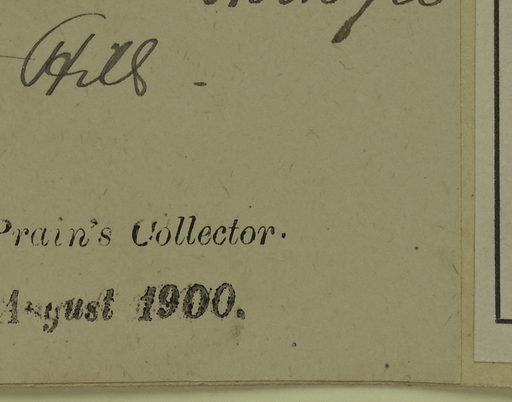 Hills -
Prain's Collector.
August 1900.